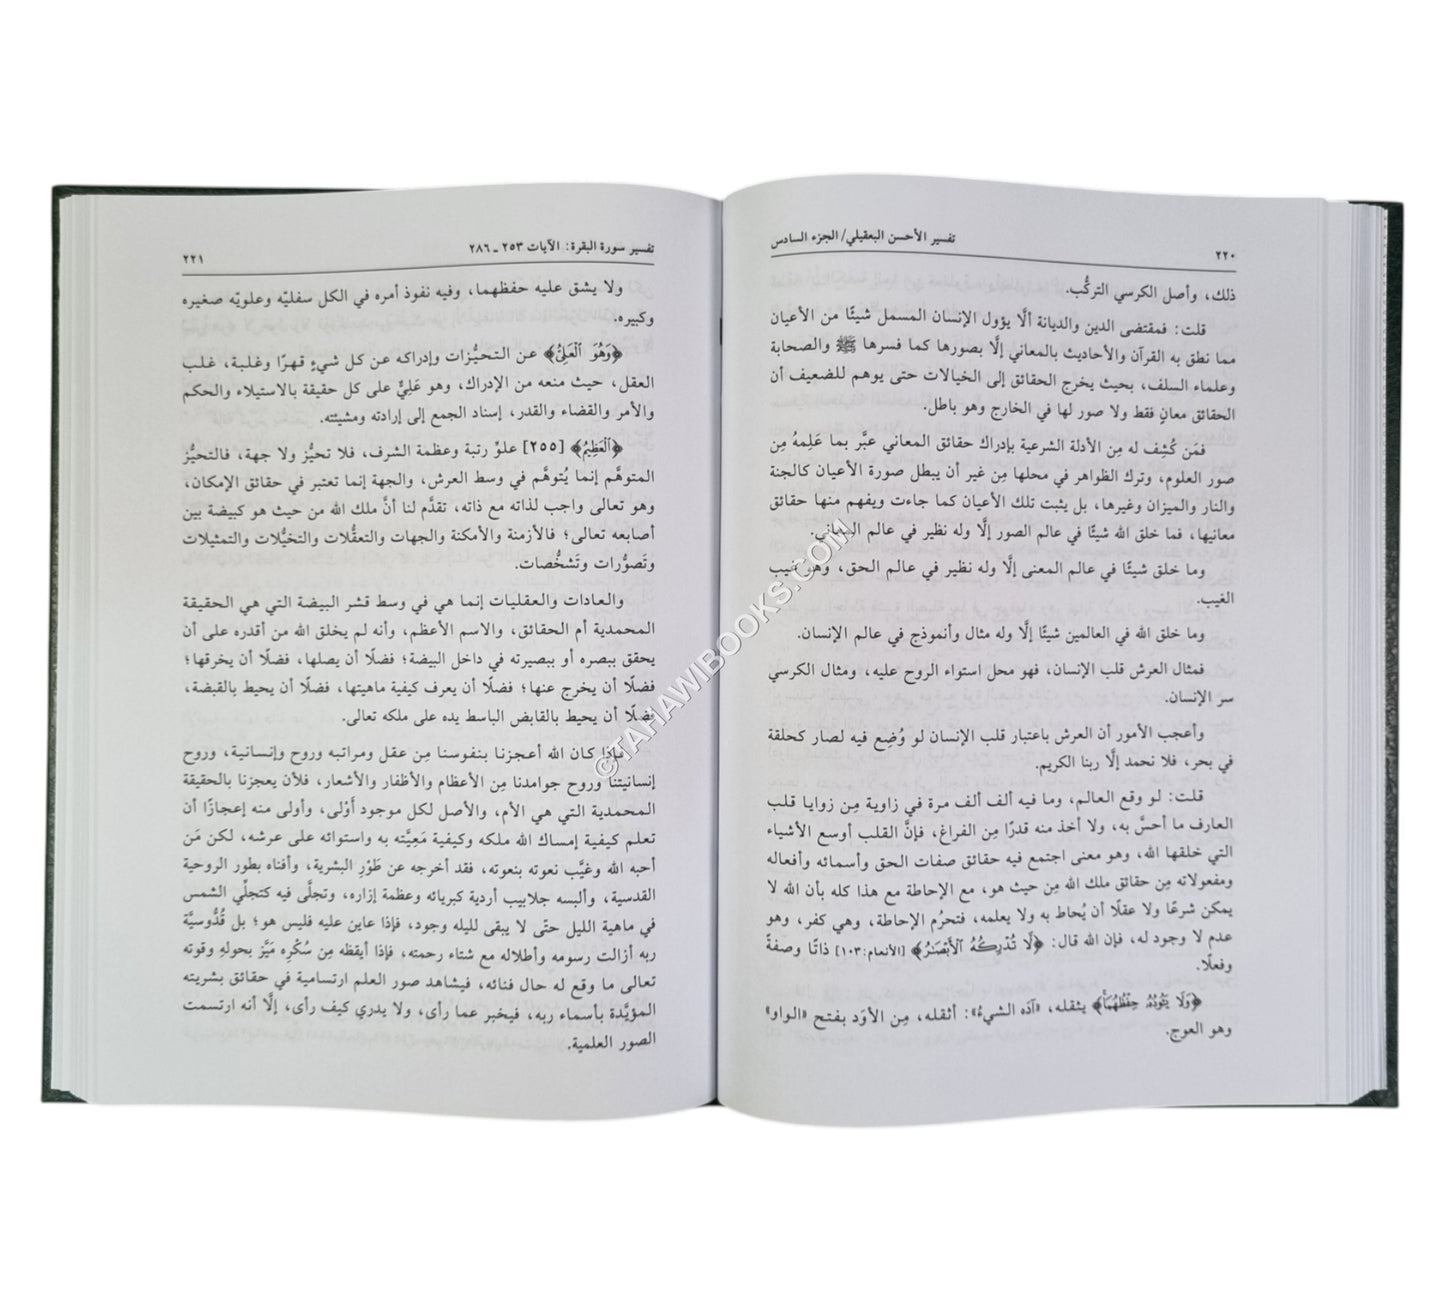 ٢٢٠
تفسير الأحسن البعقيلي/ الجزء السادس
ذلك، وأصل الكرسي التركُّب.
قلت: فمقتضى الدين والديانة ألَّا يؤول الإنسان المسمل شيئًا من الأعيان
مما نطق به القرآن والأحاديث بالمعاني إلَّا بصورها كما فسرها ﷺ والصحابة
وعلماء السلف، بحيث يخرج الحقائق إلى الخيالات حتى يوهم للضعيف أن
الحقائق معانٍ فقط ولا صور لها في الخارج وهو باطل.
فمَن كُشِف له مِن الأدلة الشرعية بإدراك حقائق المعاني عبَّر بما عَلِمهُ مِن
صور العلوم، وترك الظواهر في محلها مِن غير أن يبطل صورة الأعيان كالجنة
والنار والميزان وغيرها، بل يثبت تلك الأعيان كما جاءت ويفهم منها حقائق
معانيها، فما خلق الله شيئًا في عالم الصور إلَّا وله نظير في عالم المعاني.
وما خلق شيئًا في عالم المعنى إلَّا وله نظير في عالم الحق، وهو غيب
الغيب.
وما خلق الله في العالمين شيئًا إلَّا وله مثال وأنموذج في عالم الإنسان.
فمثال العرش قلب الإنسان، فهو محل استواء الروح عليه، ومثال الكرسي
سر الإنسان.
وأعجب الأمور أن العرش باعتبار قلب الإنسان لو وُضِع فيه لصار كحلقة
في بحر، فلا نحمد إلَّا ربنا الكريم.
قلت: لو وقع العالم، وما فيه ألف ألف مرة في زاوية مِن زوايا قلب
العارف ما أحسَّ به، ولا أخذ منه قدرًا مِن الفراغ، فإنَّ القلب أوسع الأشياء
التي خلقها الله، وهو معنى اجتمع فيه حقائق صفات الحق وأسمائه وأفعاله
ومفعولاته مِن حقائق ملك الله مِن حيث هو، مع الإحاطة مع هذا كله بأن الله لا
يمكن شرعًا ولا عقلًا أن يُحاط به ولا يعلمه، فتحرُم الإحاطة، وهي كفر، وهو
عدم لا وجود له، فإن الله قال: ﴿لَا تُدْرِكُهُ ٱلْأَبْصَـٰرُ﴾ [الأنعام: ١٠٣] ذاتًا وصفةً
وفعلًا.
﴿وَلَا يَـُٔودُهُۥ حِفْظُهُمَا﴾ يثقله، «آدَه الشيءُ»: أثقله، مِن الأوَد بفتح «الواو»
وهو العوج.
تفسير سورة البقرة: الآيات ٢٥٣ ـ ٢٨٦
٢٢١
ولا يشق عليه حفظهما، وفيه نفوذ أمره في الكل سفليّه وعلويّه صغيره
وكبيره.
﴿وَهُوَ ٱلْعَلِىُّ﴾ عن التحيُّزات وإدراكه عن كل شيءٍ قهرًا وغلبة، غلب
العقل، حيث منعه من الإدراك، وهو عَلِيٌّ على كل حقيقة بالاستيلاء والحكم
والأمر والقضاء والقدر، إسناد الجمع إلى إرادته ومشيئته.
﴿ٱلْعَظِيمُ﴾ [٢٥٥] علوّ رتبة وعظمة الشرف، فلا تحيُّز ولا جهة، فالتحيُّز
المتوهَّم إنما يُتوهَّم في وسط العرش، والجهة إنما تعتبر في حقائق الإمكان،
وهو تعالى واجب لذاته مع ذاته، تقدَّم لنا أنَّ ملك الله من حيث هو كبيضة بين
أصابعه تعالى؛ فالأزمنة والأمكنة والجهات والتعقُّلات والتخيُّلات والتمثيلات
وتَصوُّرات وتَشخُّصات.
والعادات والعقليات إنما هي في وسط قشر البيضة التي هي الحقيقة
المحمدية أم الحقائق، والاسم الأعظم، وأنه لم يخلق الله من أقدره على أن
يحقق ببصره أو ببصيرته في داخل البيضة؛ فضلًا أن يصلها، فضلًا أن يخرقها؛
فضلًا أن يخرج عنها؛ فضلًا أن يعرف كيفية ماهيتها، فضلًا أن يحيط بالقبضة،
فضلًا أن يحيط بالقابض الباسط يده على ملكه تعالى.
فإذا كان الله أعجزنا بنفوسنا مِن عقل ومراتبه وروح وإنسانية، وروح
إنسانيتنا وروح جوامدنا مِن الأعظام والأظفار والأشعار، فلأن يعجزنا بالحقيقة
المحمدية التي هي الأم، والأصل لكل موجود أَوْلى، وأولى منه إعجازًا أن
تعلم كيفية إمساك الله ملكه وكيفية مَعِيَّته به واستوائه على عرشه، لكن مَن
أحبه الله وغيَّب نعوته بنعوته، فقد أخرجه عن طَوْرِ البشرية، وأفناه بطور الروحية
القدسية، وألبسه جلابيب أردية كبريائه وعظمة إزاره، وتجلَّى فيه كتجلِّي الشمس
في ماهية الليل حتّى لا يبقى لليله وجود، فإذا عاين عليه فليس هو؛ بل قُدُّوسيَّة
ربه أزالت رسومه وأطلاله مع شتاء رحمته، فإذا أيقظه مِن سُكْرِه مَيَّز بحولهِ وقوته
تعالى ما وقع له حال فنائه، فيشاهد صور العلم ارتسامية في حقائق بشريته
المؤيَّدة بأسماء ربه، فيخبر عما رأى، ولا يدري كيف رأى، إلَّا أنه ارتسمت
الصور العلمية.
©TAHAWIBOOKS.COM